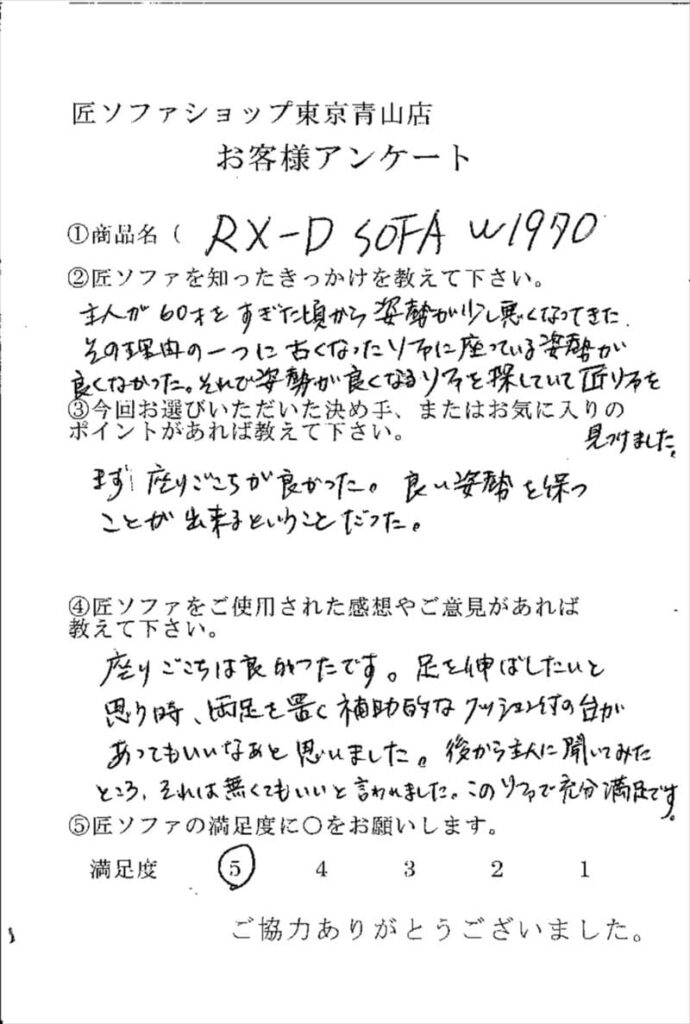 匠ソファショップ東京青山店
お客様アンケート
①商品名( RX-D SOFA W1970
②匠ソファを知ったきっかけを教えて下さい。
主人が60才をすぎた頃から姿勢が少し悪くなってきた
その理由の一つに古くなったソファに座っている姿勢が
良くなかった。それで姿勢が良くなるソファを探していて匠ソファを
見つけました。
③今回お選びいただいた決め手、またはお気に入りの
ポイントがあれば教えて下さい。
まず座りごこちが良かった。良い姿勢を保つ
ことが出来るということだった。
④匠ソファをご使用された感想やご意見があれば
教えて下さい。
座りごこちは良かったです。足を伸ばしたいと
思う時、両足を置く補助的なクッション付の台が
あってもいいなあと思いました。後から主人に聞いてみた
ところ、それは無くてもいいと言われました。このソファで充分満足です。
⑤匠ソファの満足度に○をお願いします。
満足度 5 4 3 2 1
ご協力ありがとうございました。